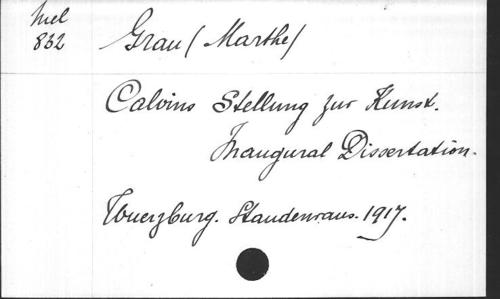 Mel
832
Grau (Marthe)
Calvins Stellung zur Kunst.
Inaugural Dissertation.
Wuerzburg. Staudenraus. 1917.